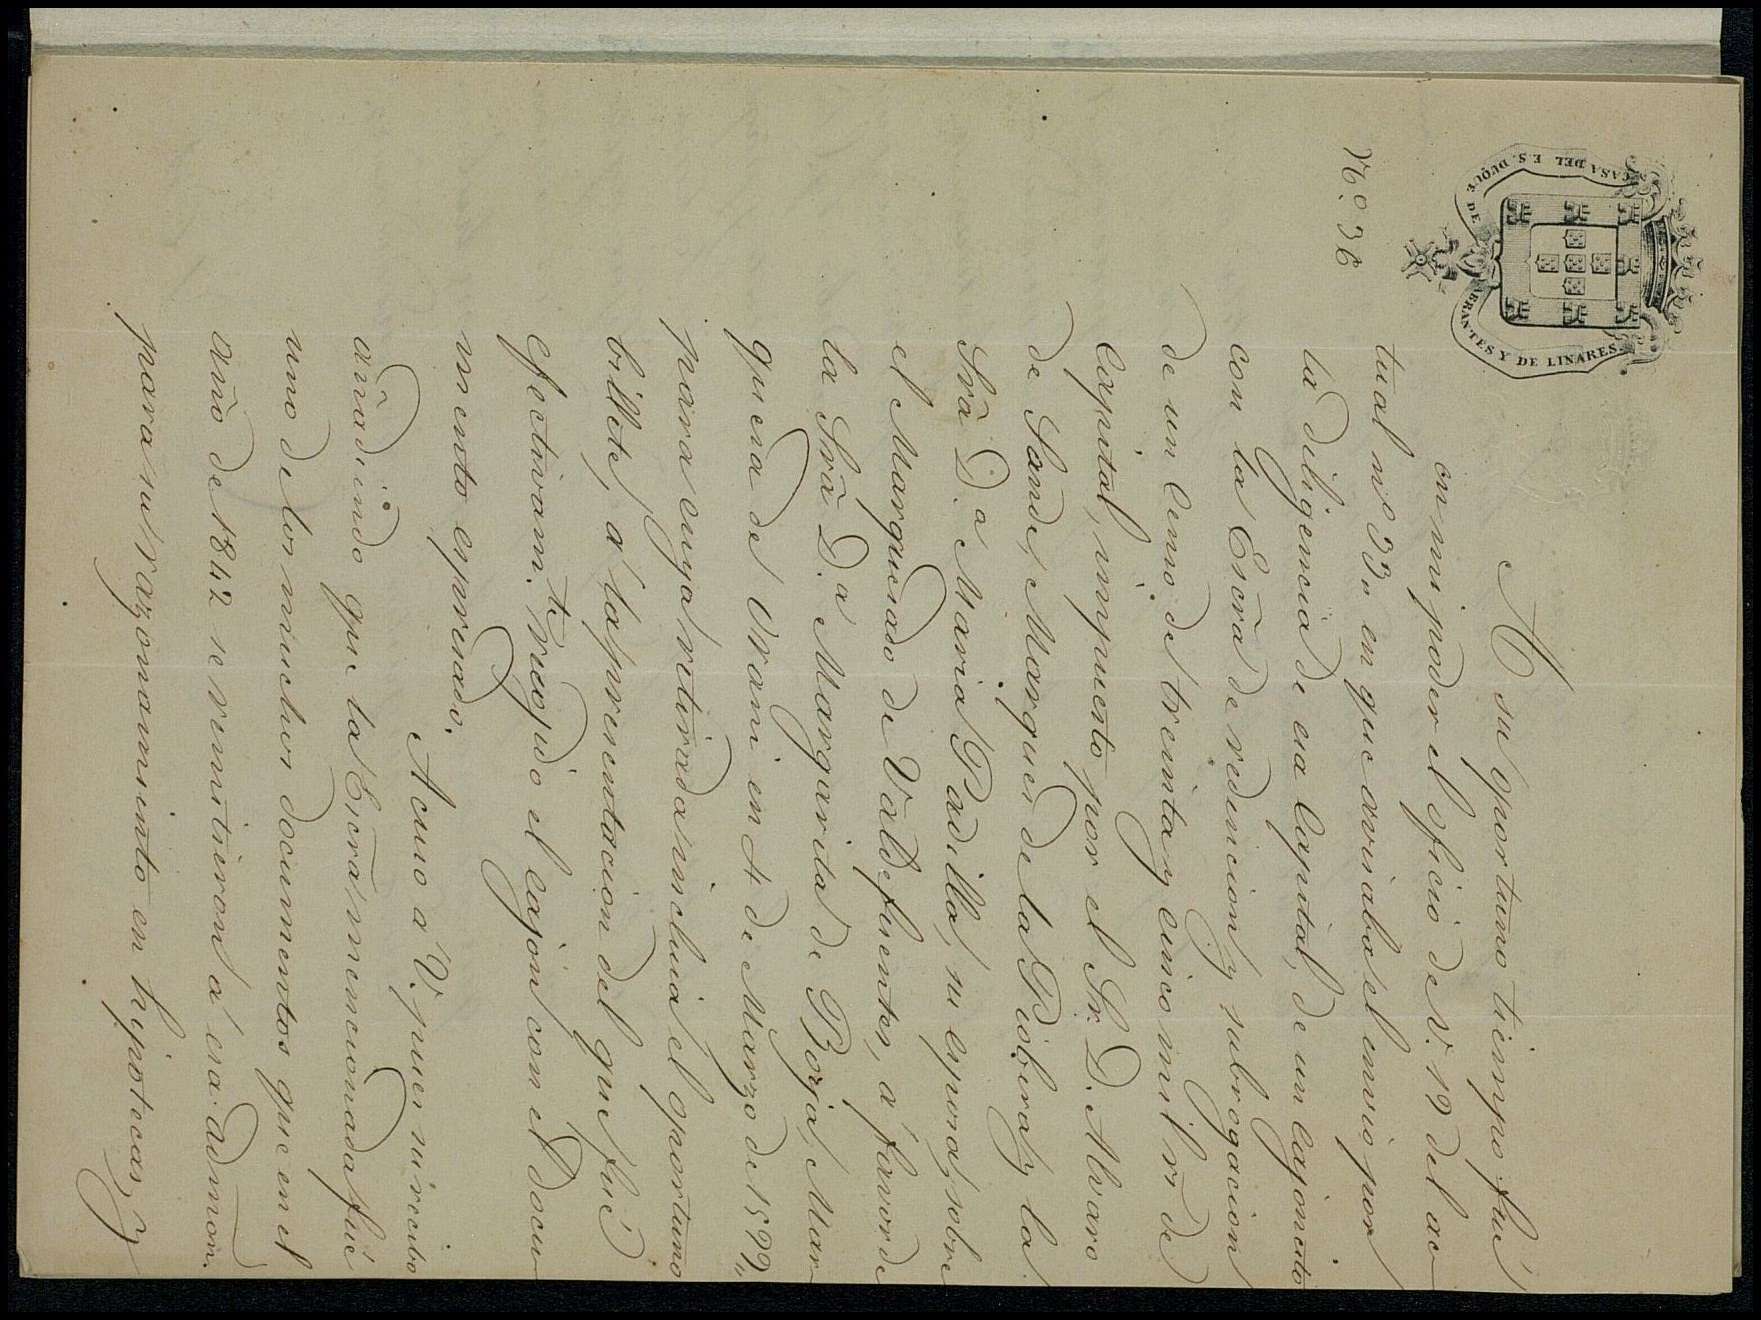 CASA DEL E.S. DUQUE DE ABRANTES Y DE LINARES.
N.º 36
A su oportuno tiempo fué
en mi poder el oficio de V. 19 del ac
tual nº 33,, en que avisaba el envio por
la diligencia de esa Capital, de un cajoncito
con la Escrã de redencion y subrogacion
de un Censo de treinta y cinco mil rs. de
Capital, impuesto por el Sr. D. Alvaro
de Sande, Marques de la Piobera, y la
Srã D.a Maria Padilla, su esposa, sobre
el Marquesado de Valdefuentes, á favor de
la Srã D.a Margarita de Borja, Mar
quesa de Orani en 4 de Marzo de 1599,,
para cuya retirada incluia el oportuno
billete, á la presentacion del que fué
efectivam.te recojido el cajon con el docu
mento espresado.
Acuso á V. pues su recibo
añadiendo que la Escrã mencionada fué
uno de los muchos documentos que en el
año de 1842 se remitieron á esa admon.
para su razonamiento en hipotecas, y